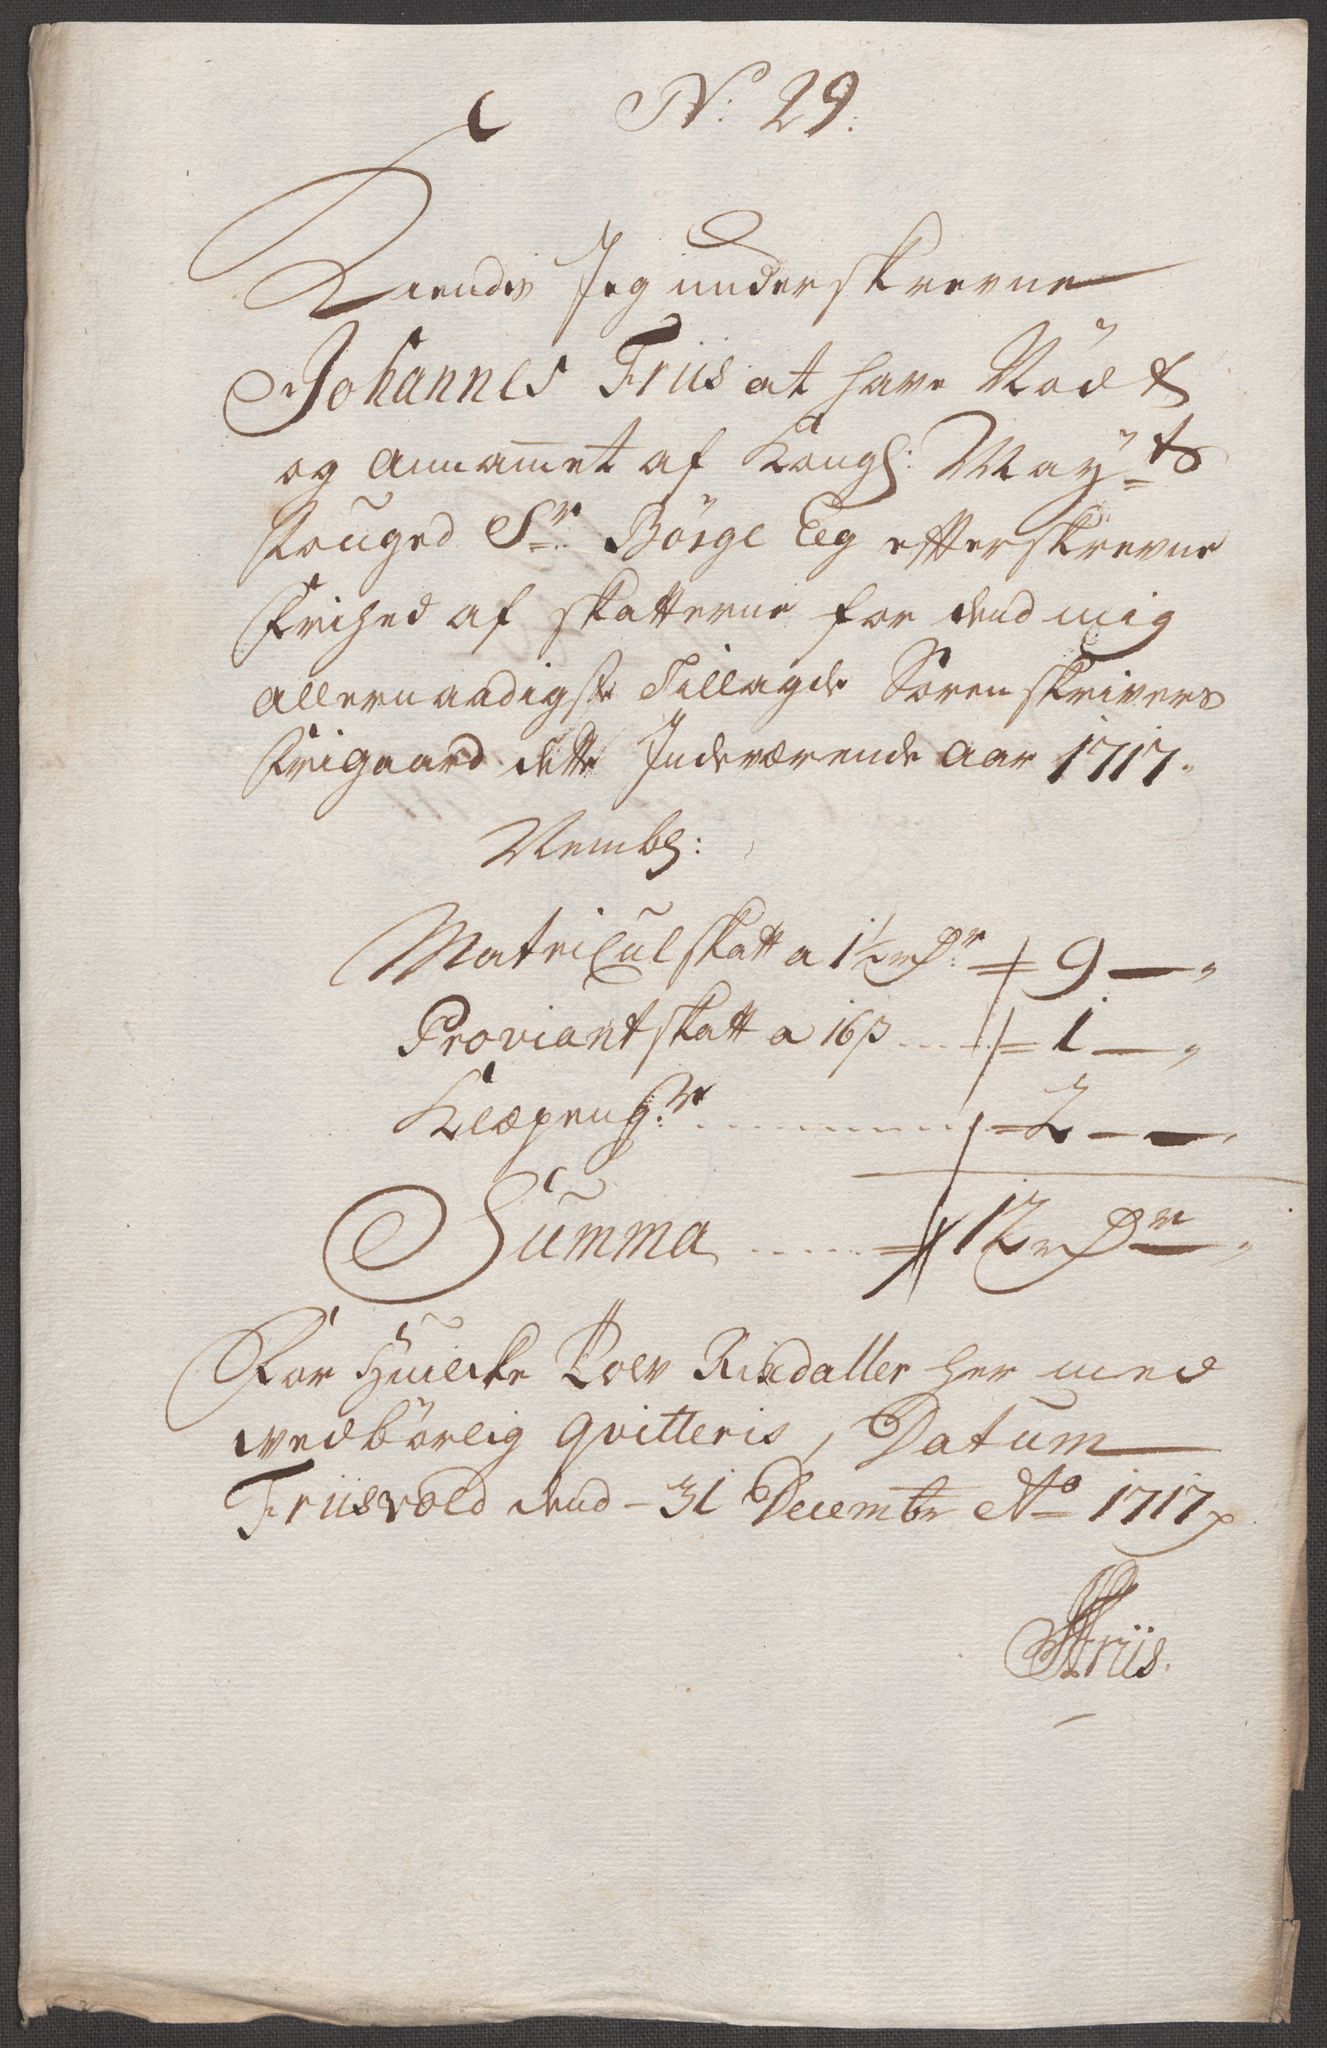 No: 29.
Kiendes Jeg underskrevne
Johannes Friis at have Nødt
og annammet af Kongl: May:ts
Fouged Sr: Børge Eeg efterskrevne
Frihed af skatterne for dend mig
allernaadigste Tillagde Sorenskrivers
Frigaard dette Indeværende Aar 1717.
Nembl:
Matricul skatt a 1½ rdr: = 9 — „
Proviant skatt a 16 β ..... = 1 — „
Klæpengr: ........... = 2 — — „
Summa ..... = 12 rdr — „
For Huilcke Tolv Rixdaller her med
vedbörlig qvitteris, Datum
Friisvold dend - 31 Decembr Ao 1717
JFriis.